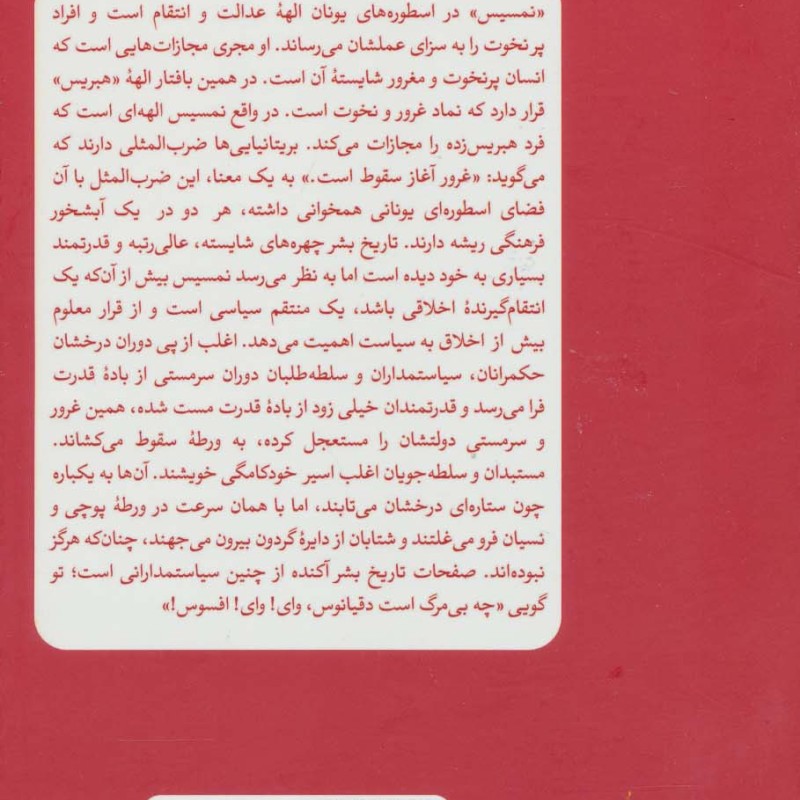 «نمسیس» در اسطوره‌های یونان الههٔ عدالت و انتقام است و افراد
پر نخوت را به سزای عملشان می‌رساند. او مجری مجازات‌هایی است که
انسان پرنخوت و مغرور شایستهٔ آن است. در همین بافتار الههٔ «هبریس»
قرار دارد که نماد غرور و نخوت است. در واقع نمسیس الهه‌ای است که
فرد هبریس‌زده را مجازات می‌کند. بریتانیایی‌ها ضرب‌المثلی دارند که
می‌گوید: «غرور آغاز سقوط است.» به یک معنا، این ضرب‌المثل با آن
فضای اسطوره‌ای یونانی همخوانی داشته، هر دو در یک آبشخور
فرهنگی ریشه دارند. تاریخ بشر چهره‌های شایسته، عالی‌رتبه و قدرتمند
بسیاری به خود دیده است اما به نظر می‌رسد نمسیس بیش از آن‌که یک
انتقام‌گیرندهٔ اخلاقی باشد، یک منتقم سیاسی است و از قرار معلوم
بیش از اخلاق به سیاست اهمیت می‌دهد. اغلب از پی دوران درخشان
حکمرانان، سیاستمداران و سلطه‌طلبان دوران سرمستی از بادهٔ قدرت
فرا می‌رسد و قدرتمندان خیلی زود از بادهٔ قدرت مست شده، همین غرور
و سرمستی دولتشان را مستعجل کرده، به ورطهٔ سقوط می‌کشاند.
مستبدان و سلطه‌جویان اغلب اسیر خودکامگی خویشند. آن‌ها به یکباره
چون ستاره‌ای درخشان می‌تابند، اما با همان سرعت در ورطهٔ پوچی و
نسیان فرو می‌غلتند و شتابان از دایرهٔ گردون بیرون می‌جهند، چنان‌که هرگز
نبوده‌اند. صفحات تاریخ بشر آکنده از چنین سیاستمدارانی است؛ تو
گویی «چه بی‌مرگ است دقیانوس، وای! وای! افسوس!»